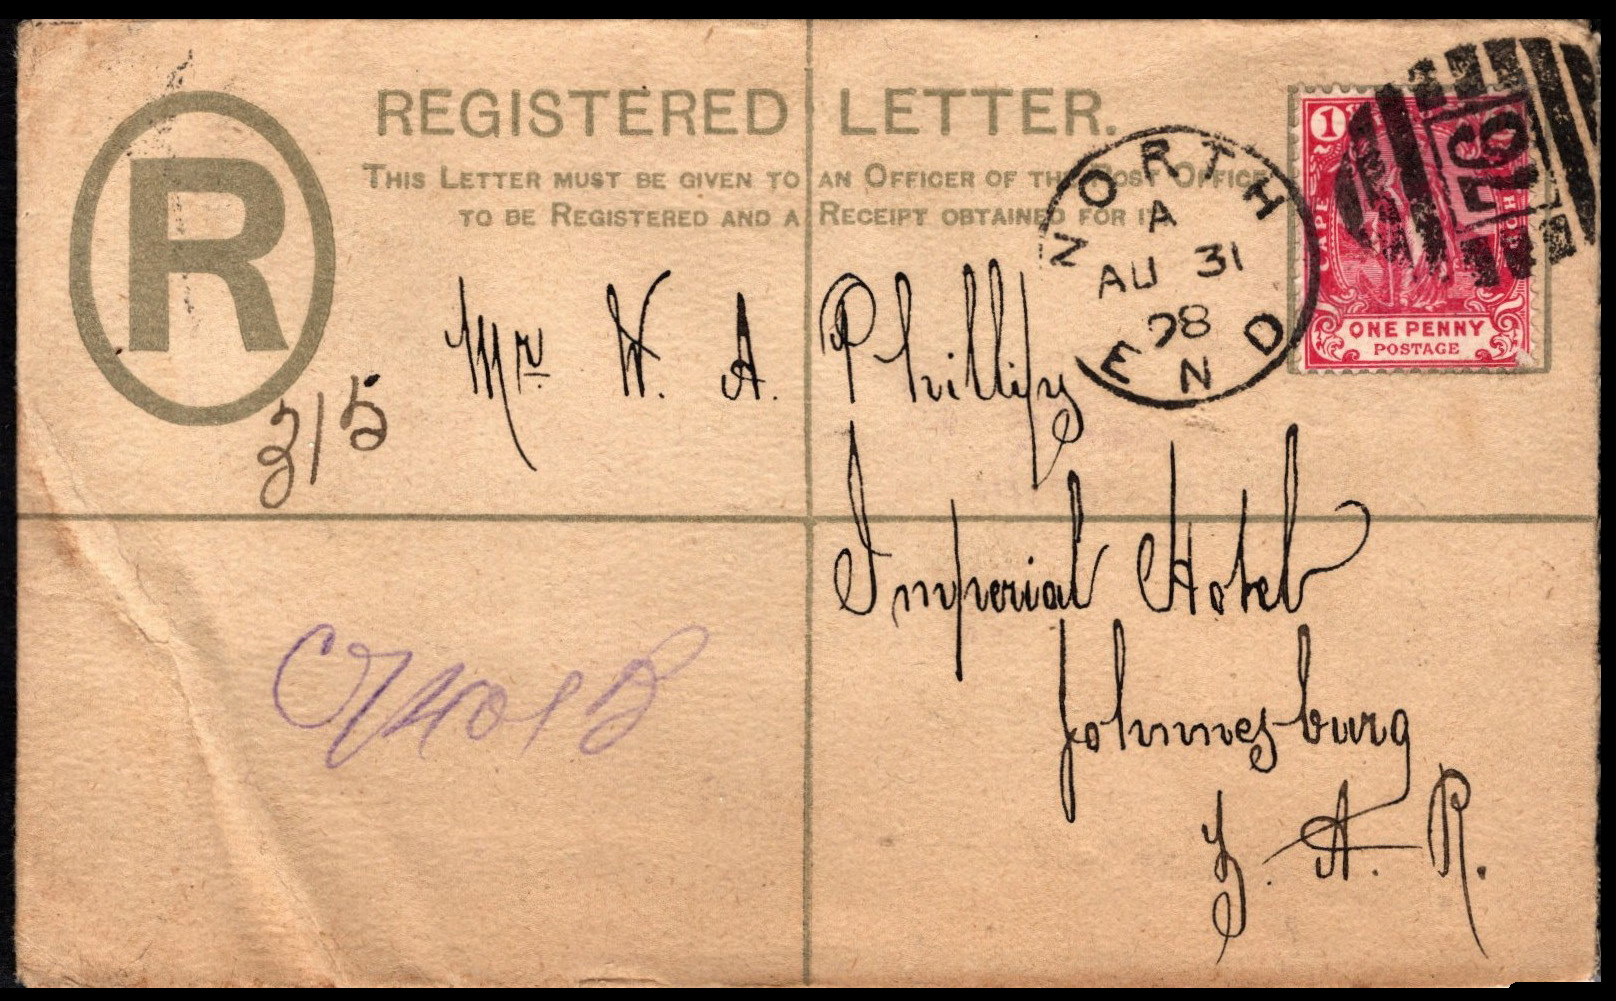 REGISTERED LETTER.
THIS LETTER MUST BE GIVEN TO AN OFFICER OF THE POST OFFICE
TO BE REGISTERED AND A RECEIPT OBTAINED FOR IT
R
NORTH END
A
AU 31
98
1
CAPE HOPE
ONE PENNY
POSTAGE
315
Mr W. A. Phillips
Imperial Hotel
Johnnesburg
Z. A. R.